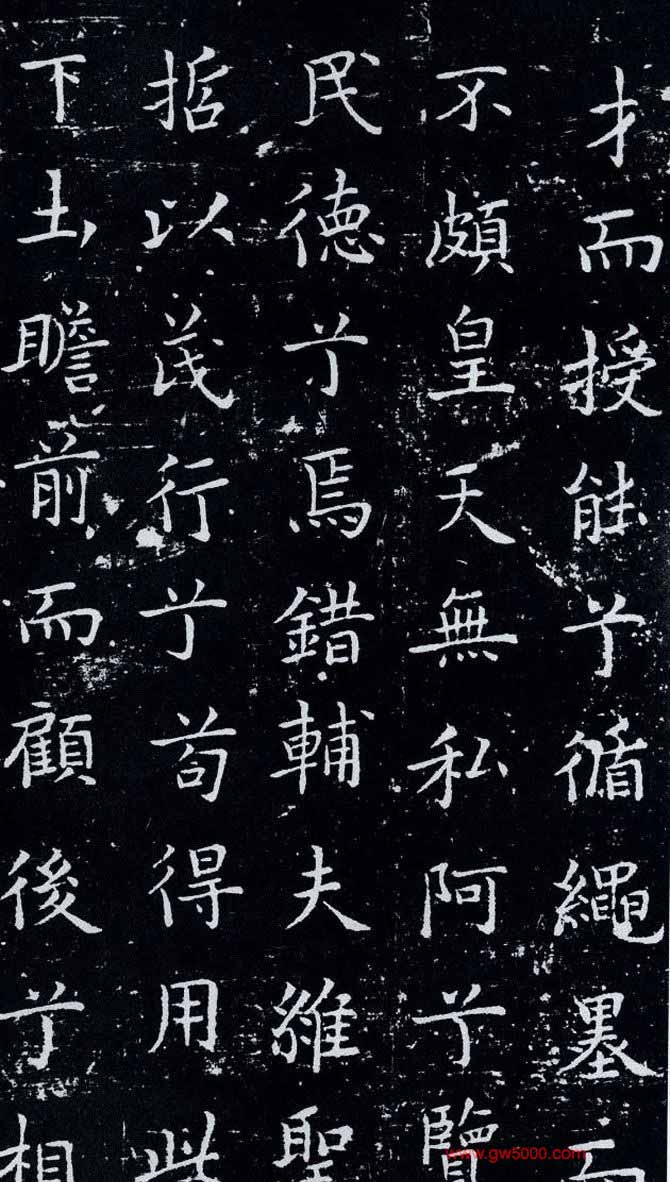 才而授能兮循繩墨而
不頗皇天無私阿兮覽
民德兮焉錯輔夫維聖
哲以茂行兮苟得用此
下土瞻前而顧後兮相
www.gw5000.com